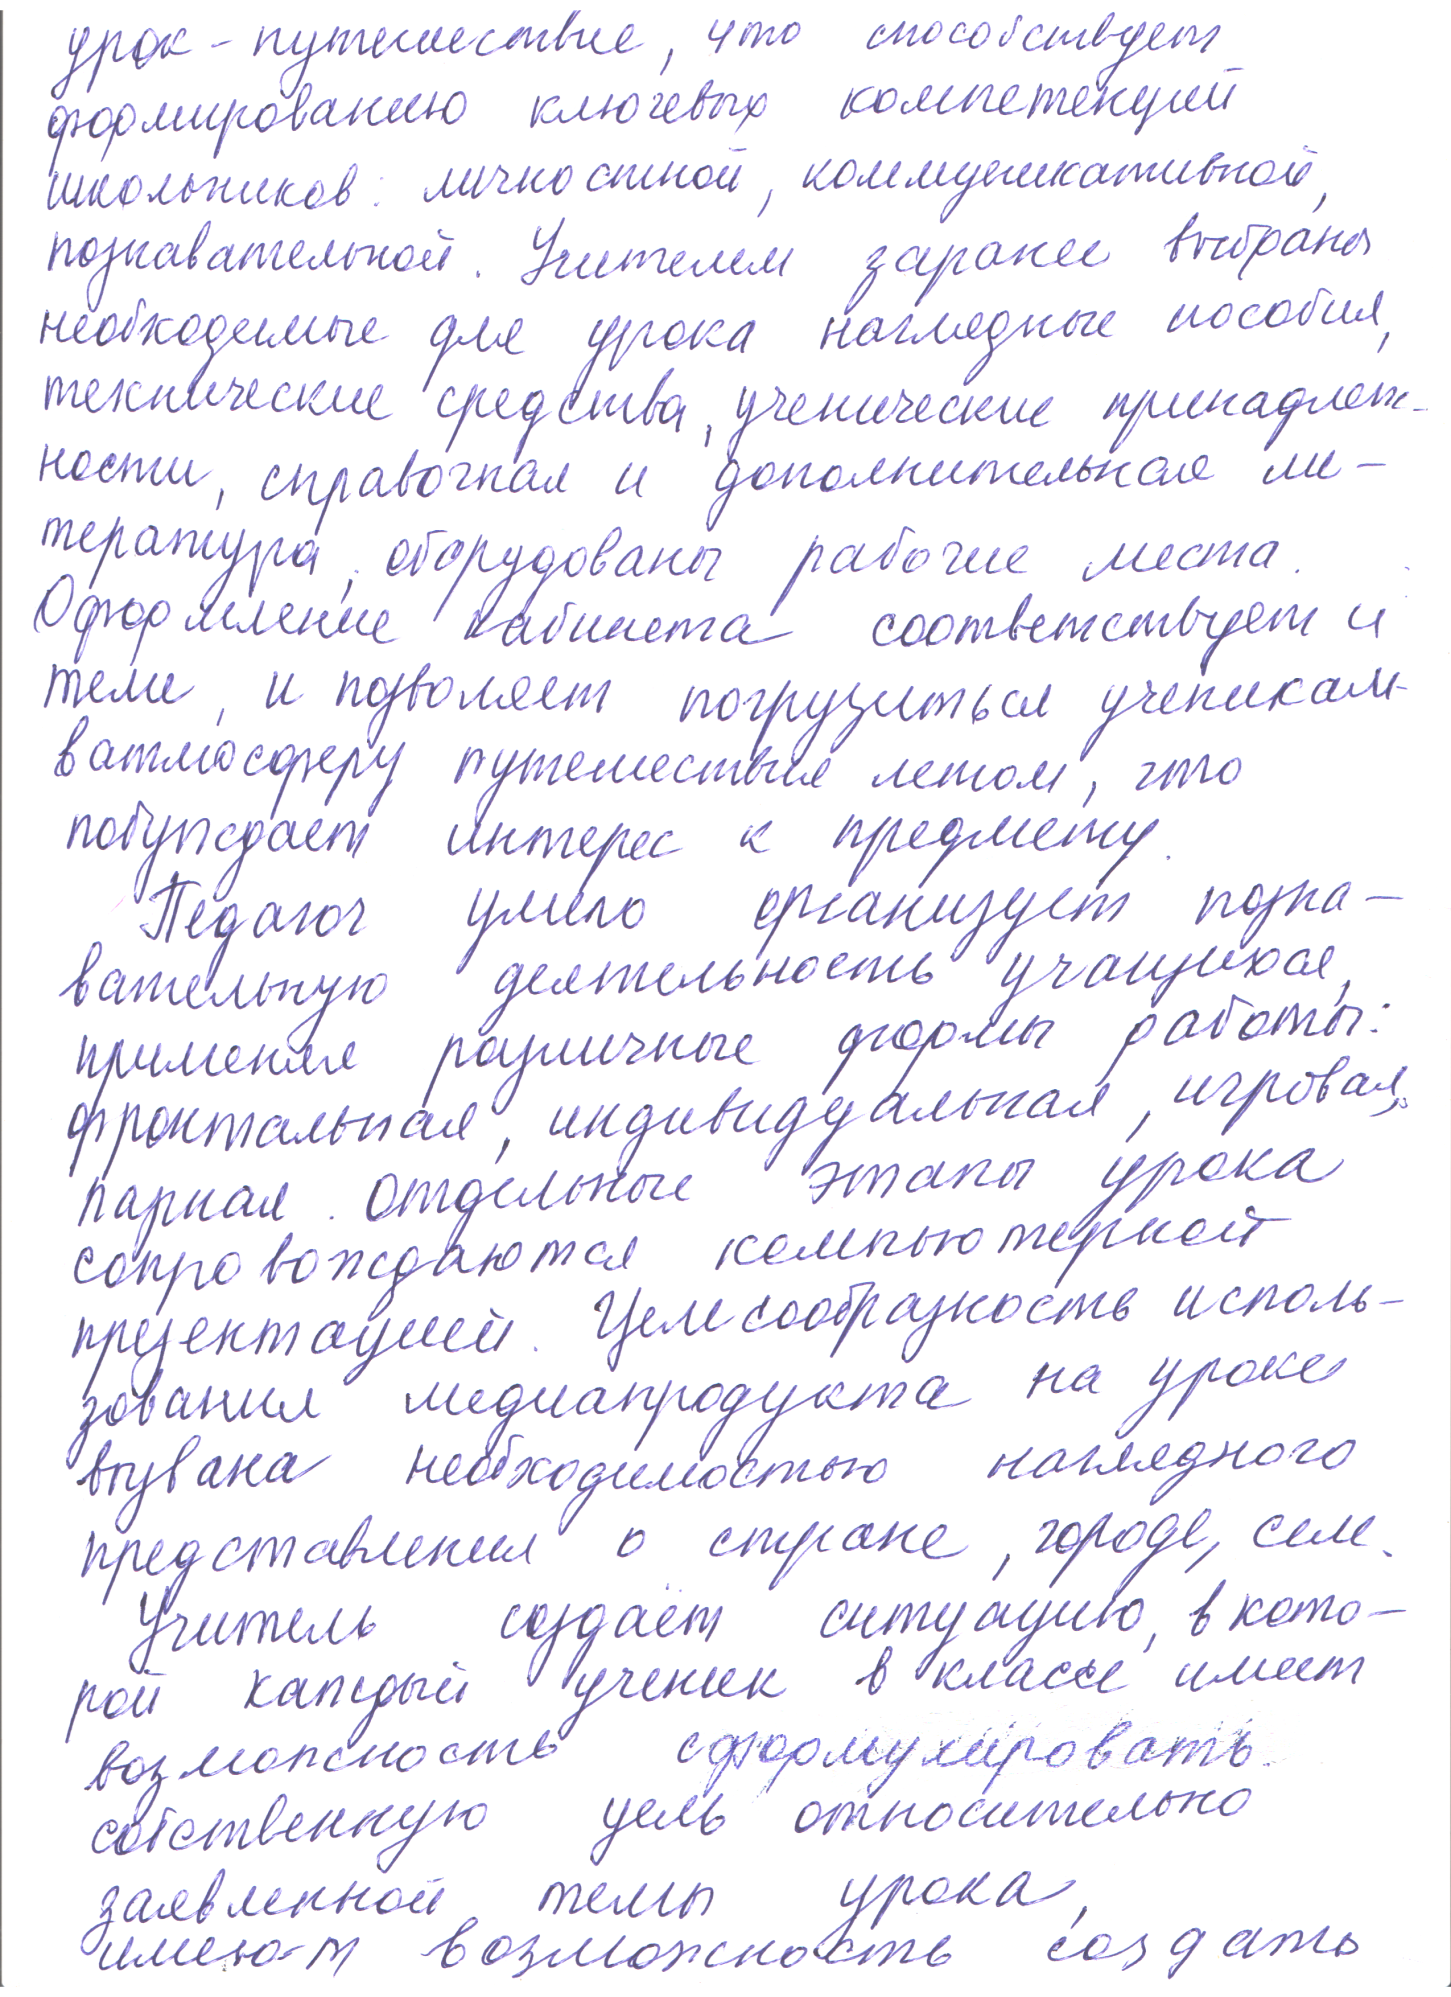 урок-путешествие, что способствует
формированию ключевых компетенций
школьников: личностной, коммуникативной,
познавательной. Учителем заранее выбраны
необходимые для урока наглядные пособия,
технические средства, ученические принадлеж-
ности, справочная и дополнительная ли-
тература, оборудованы рабочие места.
Оформление кабинета соответствует и
теме, и позволяет погрузиться ученикам
в атмосферу путешествия летом, что
побуждает интерес к предмету.
Педагог умело организует позна-
вательную деятельность учащихся,
применяя различные формы работы:
фронтальная, индивидуальная, игровая,
парная. Отдельные этапы урока
сопровождаются компьютерной
презентацией. Целесообразность исполь-
зования медиапродукта на уроке
вызвана необходимостью наглядного
представления о стране, городе, селе.
Учитель создаёт ситуацию, в кото-
рой каждый ученик в классе имеет
возможность сформулировать
собственную цель относительно
заявленной темы урока,
имею-т возможность создать